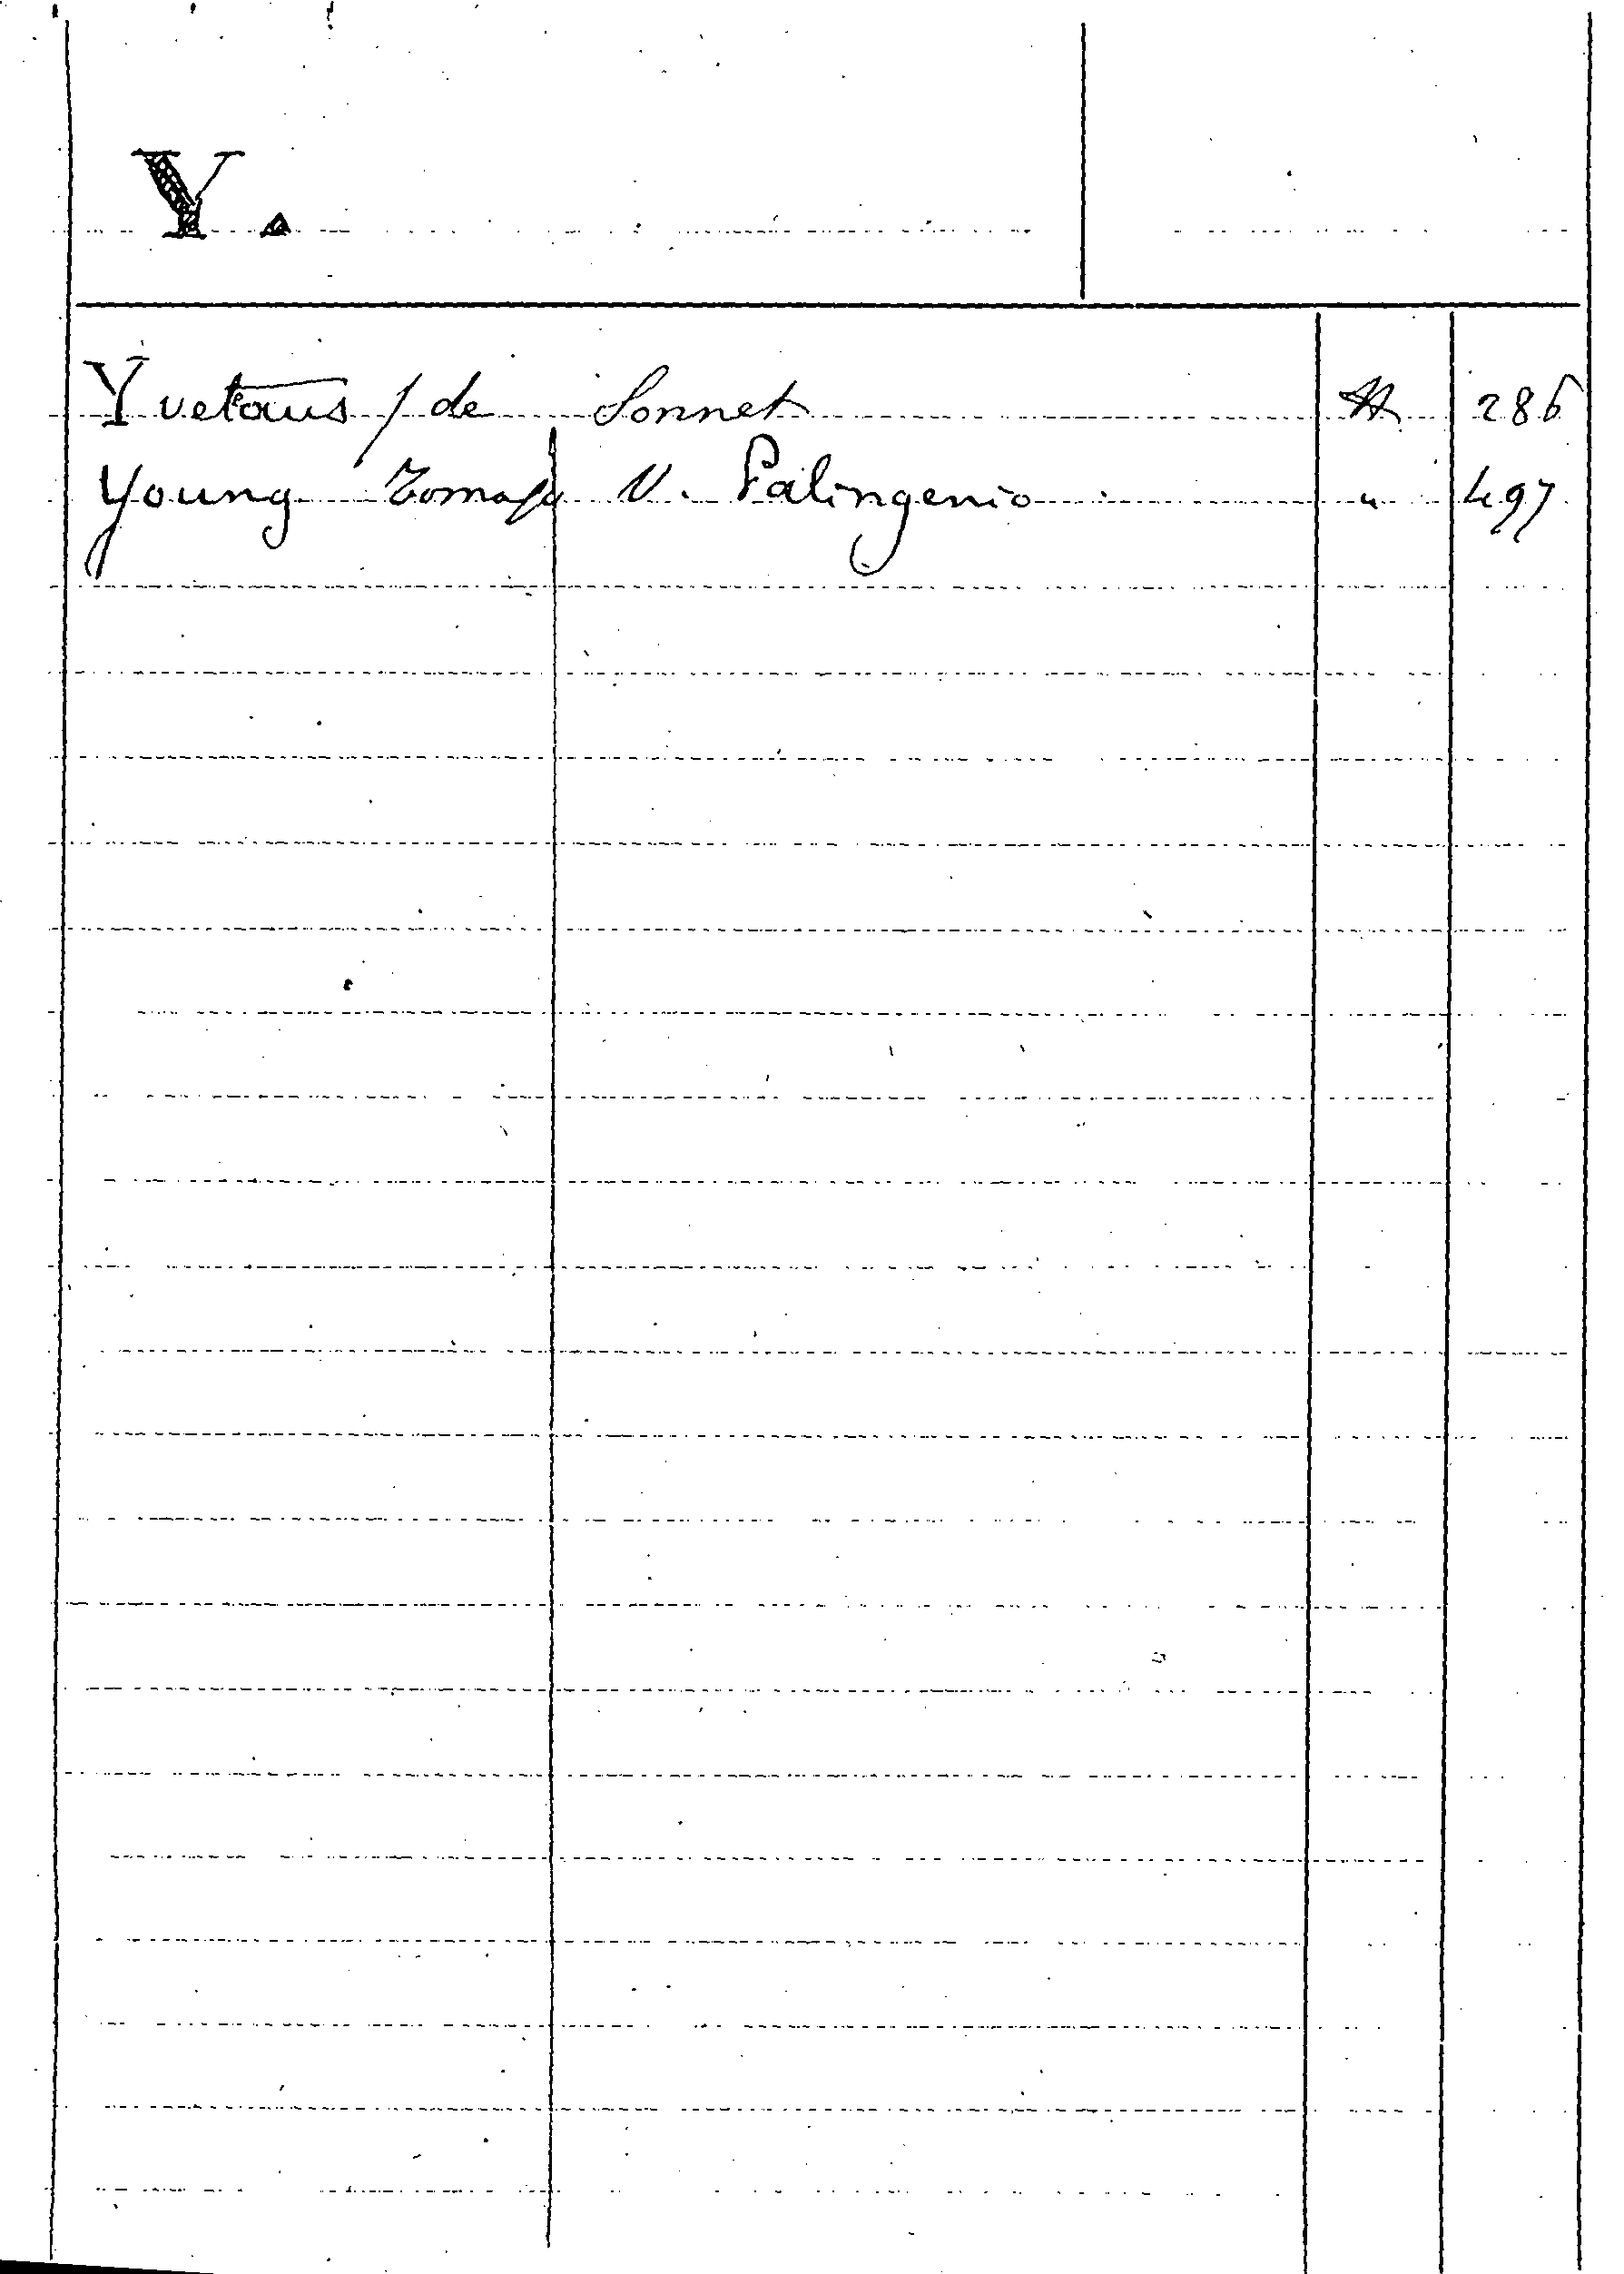 Y.
Yvetaus / de Sonnet 286
Young Tomaso V. Palingenio " 497